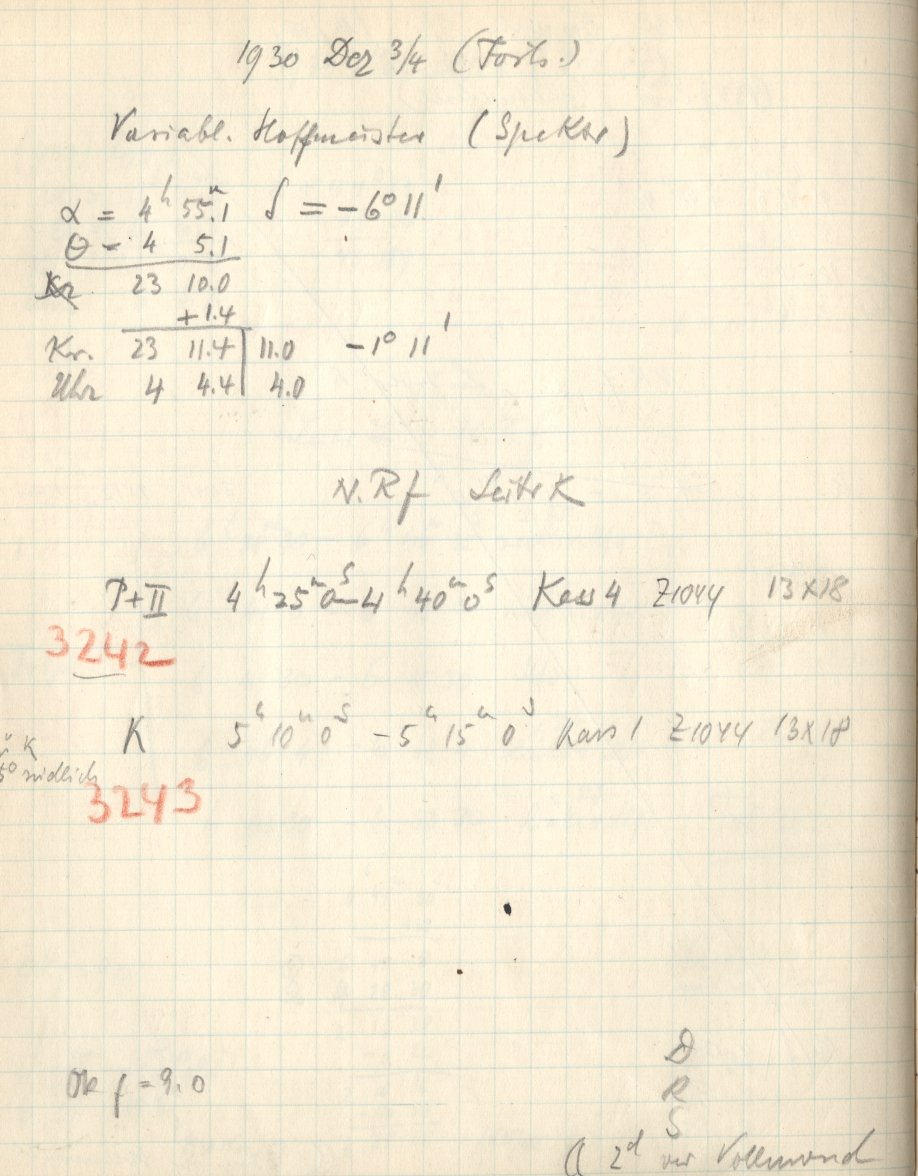 1930 Dez 3/4 (Forts.)
Variabl. Hoffmeister (Spektr)
α = 4ʰ 55ᵐ.1 δ = -6° 11'
θ = 4 5.1
Kr 23 10.0
+1.4
Kr. 23 11.4 11.0 -1° 11'
Uhr 4 4.4 4.0
N.Rf Seite K
P+II 4ʰ 25ᵐ 0ˢ - 4ʰ 40ᵐ 0ˢ Kass 4 Z1044 13x18
3242
K 5ʰ 10ᵐ 0ˢ - 5ʰ 15ᵐ 0ˢ Kass 1 Z1044 13x18
K
5° südlich
3243
Ok f = 9.0
D
R
S
2ᵈ vor Vollmond